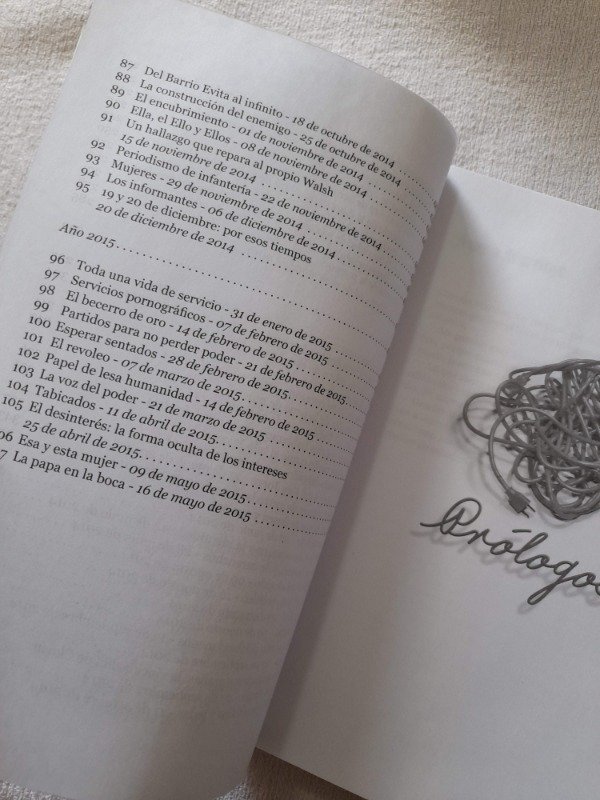 87 Del Barrio Evita al infinito - 18 de octubre de 2014
88 La construcción del enemigo - 25 de octubre de 2014
89 El encubrimiento - 01 de noviembre de 2014
90 Ella, el Ello y Ellos - 08 de noviembre de 2014
91 Un hallazgo que repara al propio Walsh
15 de noviembre de 2014
92 Periodismo de infantería - 22 de noviembre de 2014
93 Mujeres - 29 de noviembre de 2014
94 Los informantes - 06 de diciembre de 2014
95 19 y 20 de diciembre: por esos tiempos
20 de diciembre de 2014
Año 2015
96 Toda una vida de servicio - 31 de enero de 2015
97 Servicios pornográficos - 07 de febrero de 2015
98 El becerro de oro - 14 de febrero de 2015
99 Partidos para no perder poder - 21 de febrero de 2015
100 Esperar sentados - 28 de febrero de 2015
101 El revoleo - 07 de marzo de 2015
102 Papel de lesa humanidad - 14 de febrero de 2015
103 La voz del poder - 21 de marzo de 2015
104 Tabicados - 11 de abril de 2015
105 El desinterés: la forma oculta de los intereses
25 de abril de 2015
06 Esa y esta mujer - 09 de mayo de 2015
7 La papa en la boca - 16 de mayo de 2015
Prólogos